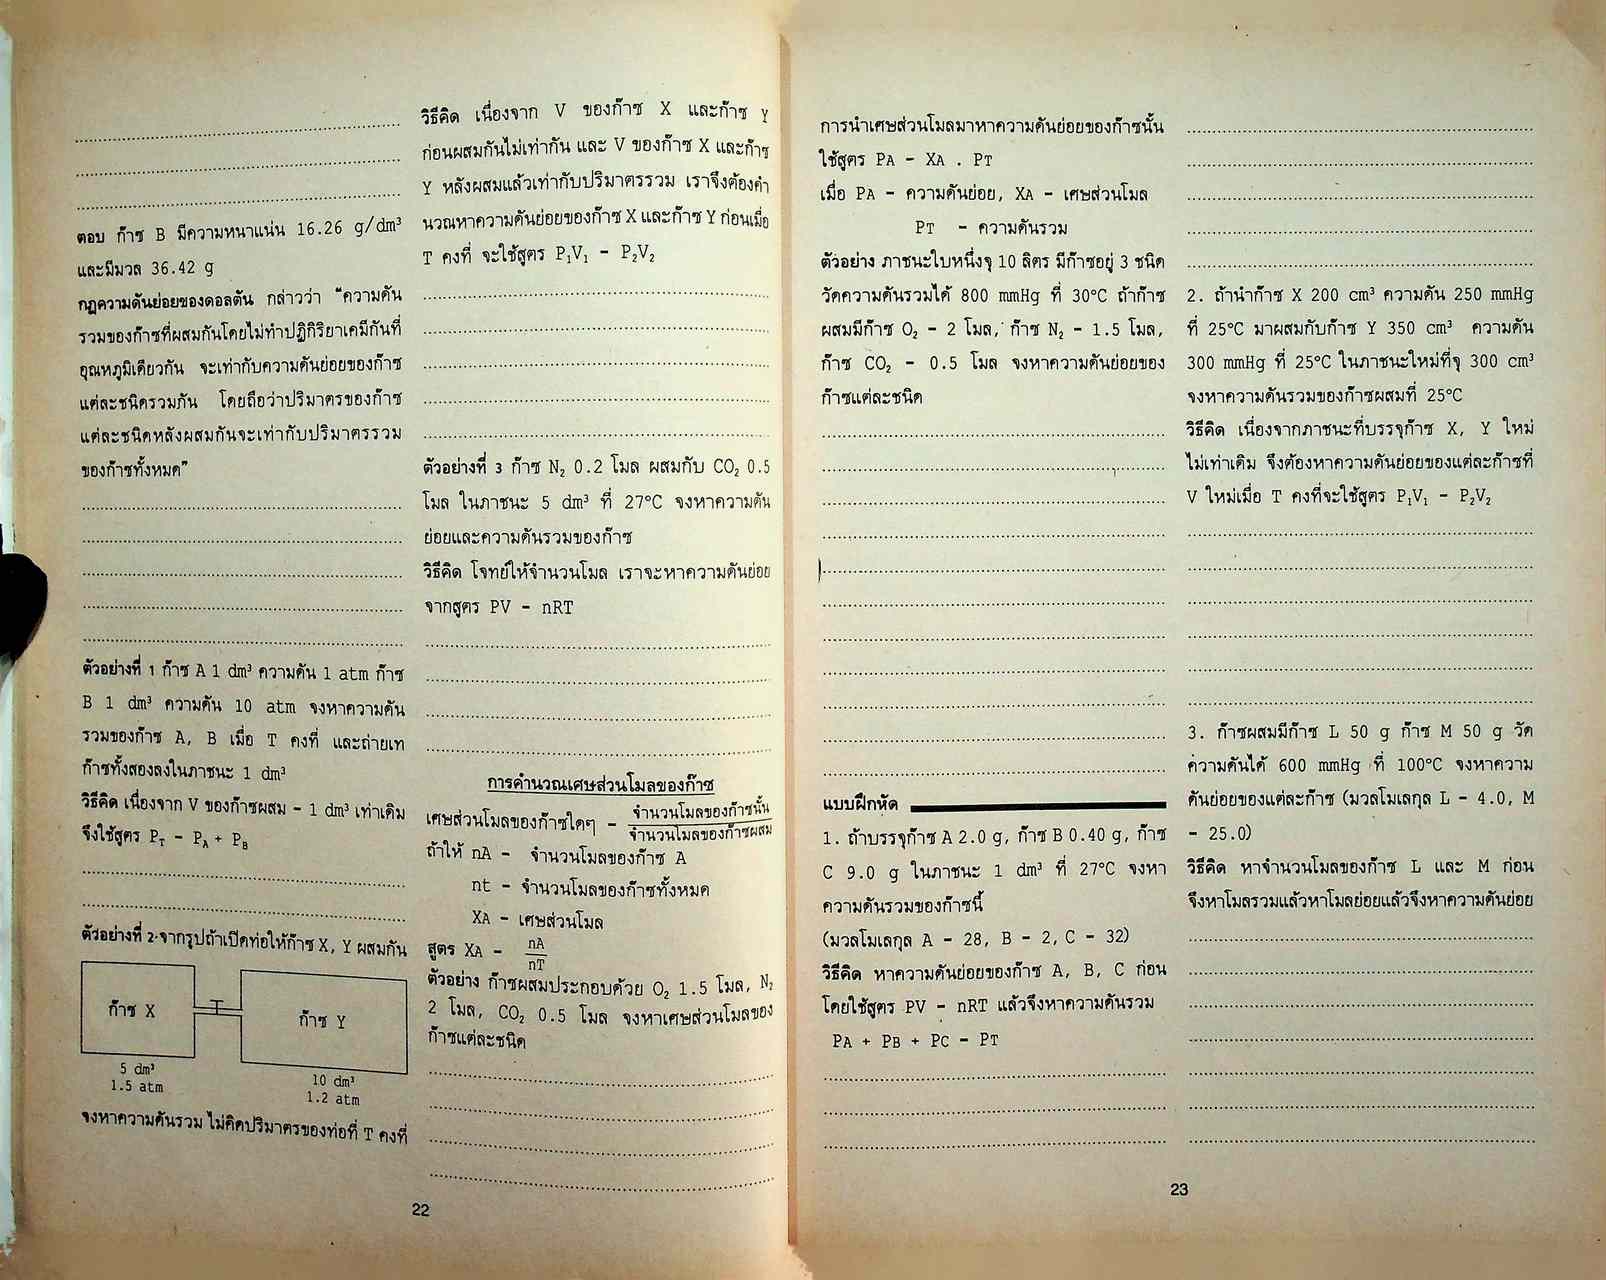 ตอบ ก๊าซ B มีความหนาแน่น 16.26 g/dm³
และมีมวล 36.42 g
กฎความดันย่อยของดอลตัน กล่าวว่า "ความดัน
รวมของก๊าซที่ผสมกันโดยไม่ทำปฏิกิริยาเคมีกันที่
อุณหภูมิเดียวกัน จะเท่ากับความดันย่อยของก๊าซ
แต่ละชนิดรวมกัน โดยถือว่าปริมาตรของก๊าซ
แต่ละชนิดหลังผสมกันจะเท่ากับปริมาตรรวม
ของก๊าซทั้งหมด"
ตัวอย่างที่ 1 ก๊าซ A 1 dm³ ความดัน 1 atm ก๊าซ
B 1 dm³ ความดัน 10 atm จงหาความดัน
รวมของก๊าซ A, B เมื่อ T คงที่ และถ่ายเท
ก๊าซทั้งสองลงในภาชนะ 1 dm³
วิธีคิด เนื่องจาก V ของก๊าซผสม - 1 dm³ เท่าเดิม
จึงใช้สูตร P_T - P_A + P_B
ตัวอย่างที่ 2 จากรูปถ้าเปิดท่อให้ก๊าซ X, Y ผสมกัน
ก๊าซ X
ก๊าซ Y
5 dm³
1.5 atm
10 dm³
1.2 atm
จงหาความดันรวม ไม่คิดปริมาตรของท่อที่ T คงที่
วิธีคิด เนื่องจาก V ของก๊าซ X และก๊าซ Y
ก่อนผสมกันไม่เท่ากัน และ V ของก๊าซ X และก๊าซ
Y หลังผสมแล้วเท่ากับปริมาตรรวม เราจึงต้องคำ
นวณหาความดันย่อยของก๊าซ X และก๊าซ Y ก่อนเมื่อ
T คงที่ จะใช้สูตร P₁V₁ - P₂V₂
ตัวอย่างที่ 3 ก๊าซ N₂ 0.2 โมล ผสมกับ CO₂ 0.5
โมล ในภาชนะ 5 dm³ ที่ 27°C จงหาความดัน
ย่อยและความดันรวมของก๊าซ
วิธีคิด โจทย์ให้จำนวนโมล เราจะหาความดันย่อย
จากสูตร PV - nRT
การคำนวณเศษส่วนโมลของก๊าซ
เศษส่วนโมลของก๊าซใดๆ - จำนวนโมลของก๊าซนั้น
จำนวนโมลของก๊าซผสม
ถ้าให้ nA - จำนวนโมลของก๊าซ A
nt - จำนวนโมลของก๊าซทั้งหมด
XA - เศษส่วนโมล
สูตร XA - nA
nT
ตัวอย่าง ก๊าซผสมประกอบด้วย O₂ 1.5 โมล, N₂
2 โมล, CO₂ 0.5 โมล จงหาเศษส่วนโมลของ
ก๊าซแต่ละชนิด
22
การนำเศษส่วนโมลมาหาความดันย่อยของก๊าซนั้น
ใช้สูตร PA - XA . PT
เมื่อ PA - ความดันย่อย, XA - เศษส่วนโมล
PT - ความดันรวม
ตัวอย่าง ภาชนะใบหนึ่งจุ 10 ลิตร มีก๊าซอยู่ 3 ชนิด
วัดความดันรวมได้ 800 mmHg ที่ 30°C ถ้าก๊าซ
ผสมมีก๊าซ O₂ - 2 โมล, ก๊าซ N₂ - 1.5 โมล,
ก๊าซ CO₂ - 0.5 โมล จงหาความดันย่อยของ
ก๊าซแต่ละชนิด
แบบฝึกหัด
1. ถ้าบรรจุก๊าซ A 2.0 g, ก๊าซ B 0.40 g, ก๊าซ
C 9.0 g ในภาชนะ 1 dm³ ที่ 27°C จงหา
ความดันรวมของก๊าซนี้
(มวลโมเลกุล A - 28, B - 2, C - 32)
วิธีคิด หาความดันย่อยของก๊าซ A, B, C ก่อน
โดยใช้สูตร PV - nRT แล้วจึงหาความดันรวม
PA + PB + PC - PT
2. ถ้านำก๊าซ X 200 cm³ ความดัน 250 mmHg
ที่ 25°C มาผสมกับก๊าซ Y 350 cm³ ความดัน
300 mmHg ที่ 25°C ในภาชนะใหม่ที่จุ 300 cm³
จงหาความดันรวมของก๊าซผสมที่ 25°C
วิธีคิด เนื่องจากภาชนะที่บรรจุก๊าซ X, Y ใหม่
ไม่เท่าเดิม จึงต้องหาความดันย่อยของแต่ละก๊าซที่
V ใหม่เมื่อ T คงที่จะใช้สูตร P₁V₁ - P₂V₂
3. ก๊าซผสมมีก๊าซ L 50 g ก๊าซ M 50 g วัด
ความดันได้ 600 mmHg ที่ 100°C จงหาความ
ดันย่อยของแต่ละก๊าซ (มวลโมเลกุล L - 4.0, M
- 25.0)
วิธีคิด หาจำนวนโมลของก๊าซ L และ M ก่อน
จึงหาโมลรวมแล้วหาโมลย่อยแล้วจึงหาความดันย่อย
23